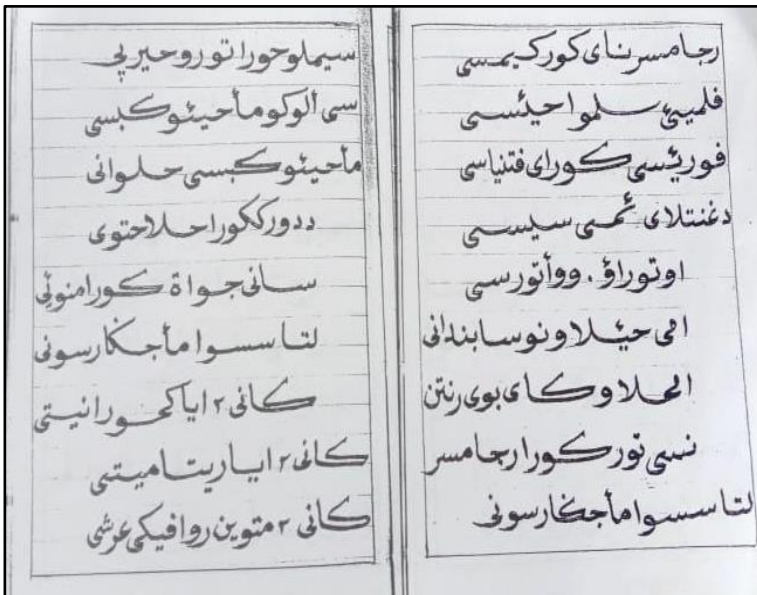 رجامسرناى كوركيمسى
فلميئ سلموا حيئسى
فوريئسى كوراى فتنياسى
دغنتلاى ئمى سيسى
اوتوراؤ. ووأتورسى
امى حيئلاونوسابندانى
الحلاوكاى بوى رنتن
نسى توركورارجامسر
لتاسسوامأجكارسونى
سيملوحوراتوروحيرپى
سى ألوكومأحيئوكبسى
مأحيئوكبسى حلوانى
ددوركkوراحلاحتوى
سانى جواة كورامنوئى
لتاسسوامأجكارسونى
كانى ٢ اياكحورانيتى
كانى ٢ اياريتاميتى
كانى ٢ متوين روافيكى عرشى